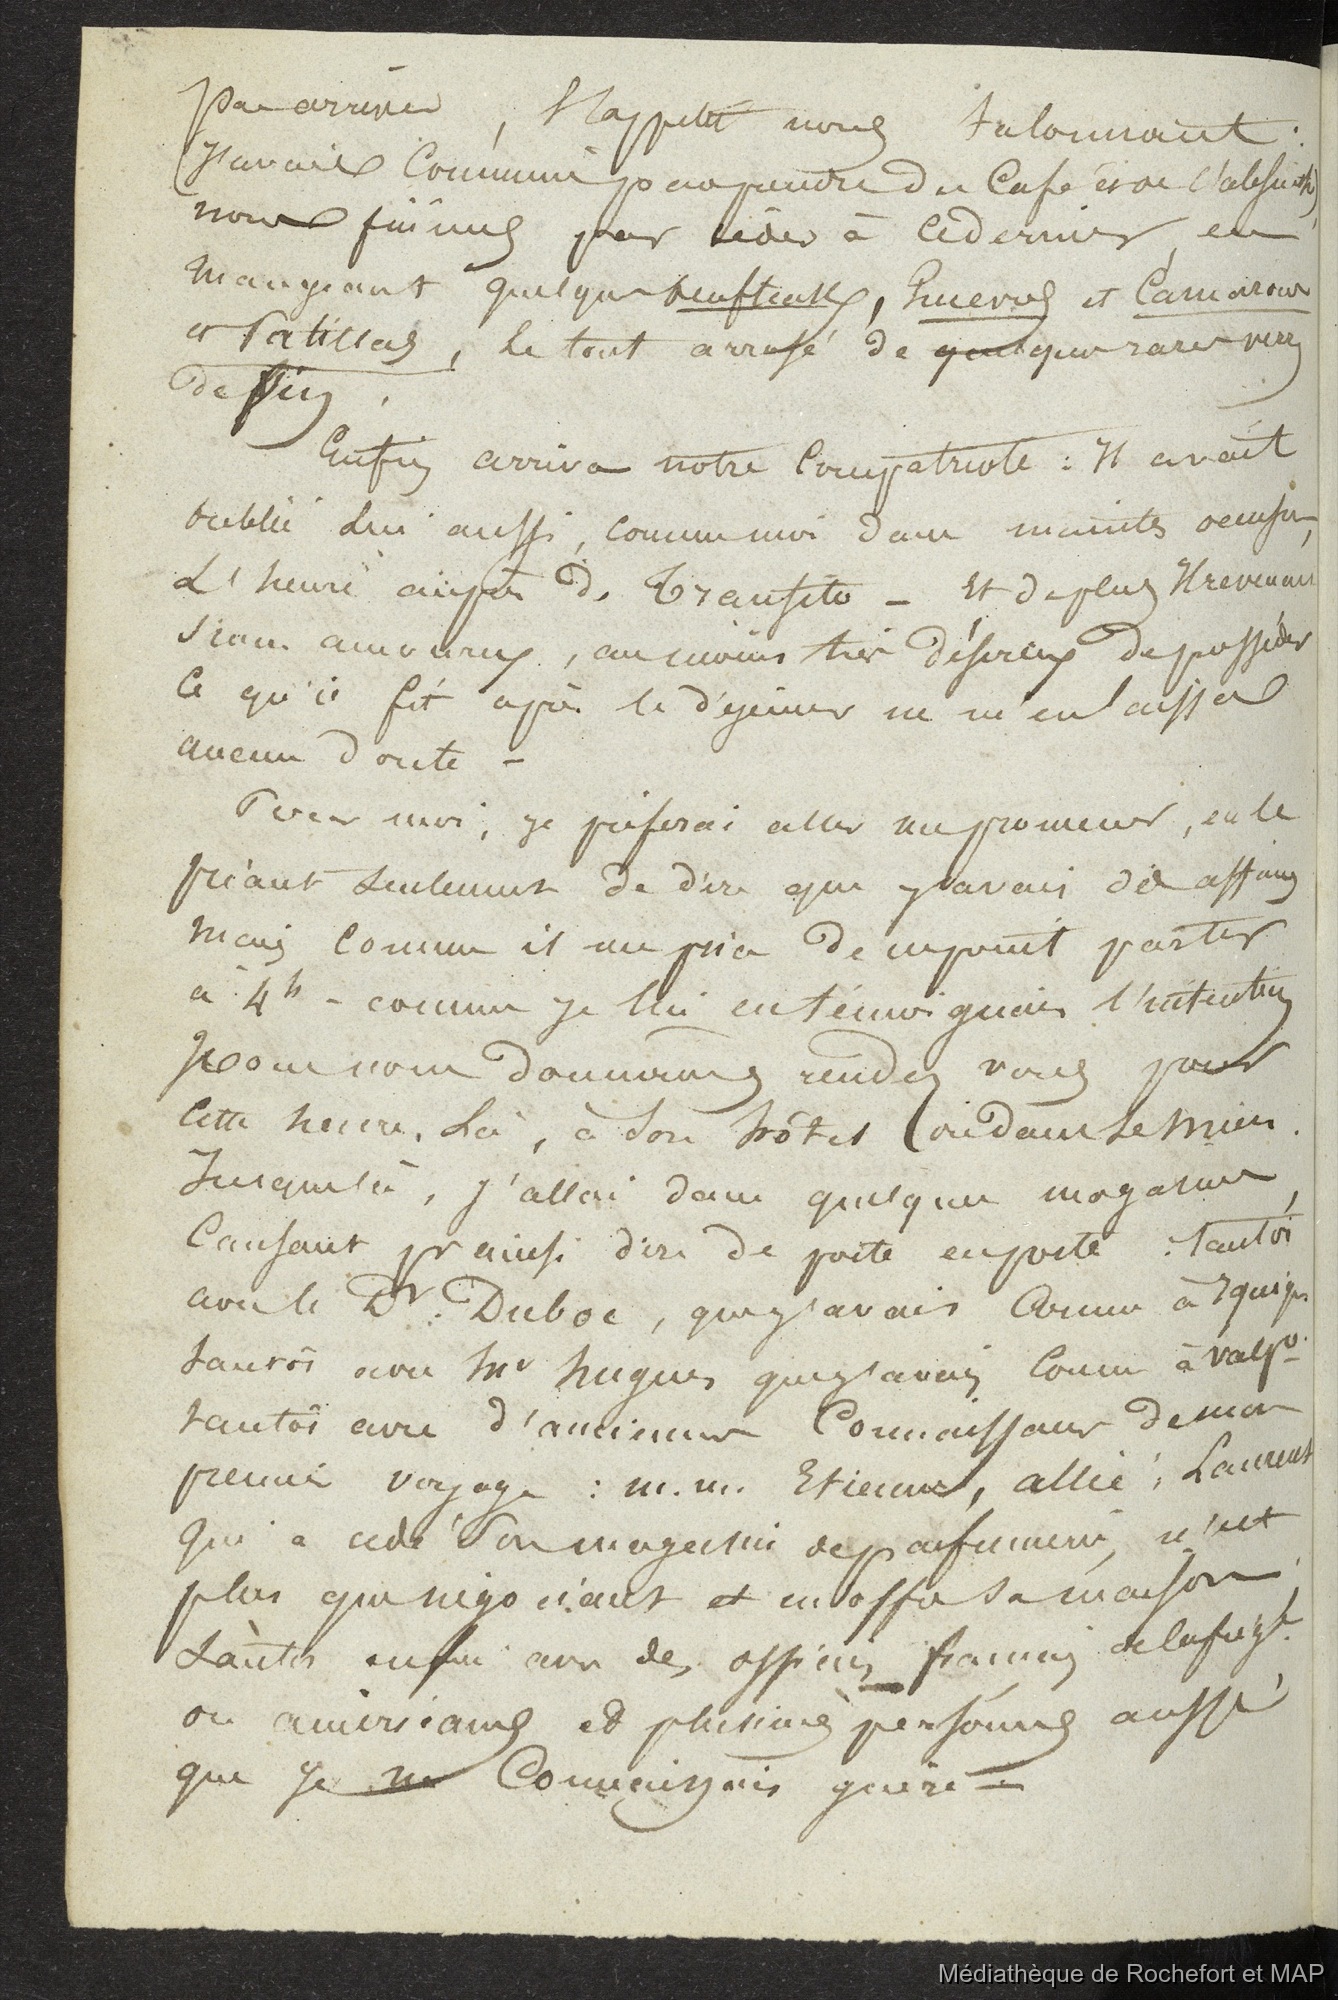 pas arriver, l'appétit nous talonnant :
(j'avais commencé par prendre du café et de l'absinthe)
nous finîmes par céder à ce dernier, en
mangeant quelques beefteaks, huevos et camarones
et Patillas, le tout arrosé de quelques rares verres
de vin.
Enfin arriva notre compatriote : il avait
oublié lui aussi, comme moi dans maintes occasions,
l'heure auprès de Transito - Et de plus il revenait
sinon amoureux, au moins très désireux de posséder
ce qu'il fit après le déjeuner ne m'en laissa
aucun doute -
Pour moi, je préférai aller me promener, en le
priant seulement de dire que j'avais des affaires
mais comme il me pria de ne point partir
à 4h - comme je lui en témoignais l'intention
nous nous donnâmes rendez vous pour
cette heure là, à son hôtel (ou dans le mien.
Jusque là, j'allai dans quelques magasins,
causant pr ainsi dire de porte en porte : tantôt
avec le Dr. Duboc, que j'avais connu à Iquique
tantôt avec Mr hugues que j'avais connu à Valpo.
tantôt avec d'anciennes connaissances de mon
premier voyage : m.m. Etienne, allié, Laurent
qui a cédé son magasin de parfumerie, n'est
plus que négociant et m'offre sa maison,
tantôt enfin avec des officiers français de la frégte.
ou américains et plusieurs personnes aussi
que je ne connaissais guère -
Médiathèque de Rochefort et MAP